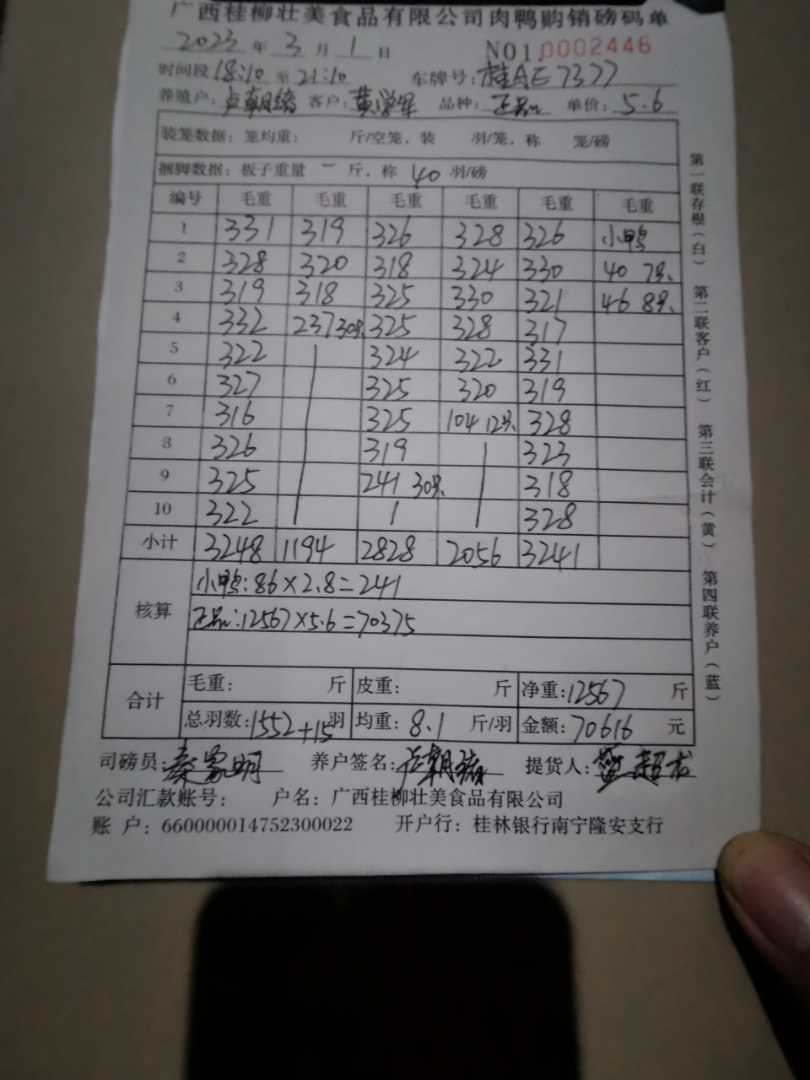 广西桂柳壮美食品有限公司肉鸭购销磅码单
2023 年 3 月 1 日 NO1 0002446
时间段 18:10 至 21:10 车牌号: 桂AE7377
养殖户: 卢朝绪 客户: 黄学军 品种: 正品 单价: 5.6
装笼数据: 笼均重: 斤/空笼, 装 羽/笼, 称 笼/磅
捆脚数据: 板子重量 一 斤, 称 40 羽/磅
编号 毛重 毛重 毛重 毛重 毛重 毛重
1 331 319 326 328 326 小鸭
2 328 320 318 324 330 40 7只
3 319 318 325 330 321 46 8只
4 332 237 30只 325 328 317
5 322 | 324 322 331
6 327 | 325 320 319
7 316 | 325 104 12只 328
8 326 | 319 | 323
9 325 | 241 30只 | 318
10 322 | | | 328
小计 3248 1194 2828 2056 3241
核算
小鸭: 86×2.8=241
正品: 12567×5.6=70375
合计
毛重: 斤 皮重: 斤 净重: 12567 斤
总羽数: 1552+15 羽 均重: 8.1 斤/羽 金额: 70616 元
司磅员: 秦家明 养户签名: 卢朝绪 提货人:
公司汇款账号: 户名: 广西桂柳壮美食品有限公司
账 户: 660000014752300022 开户行: 桂林银行南宁隆安支行
第一联存根(白) 第二联客户(红) 第三联会计(黄) 第四联养户(蓝)